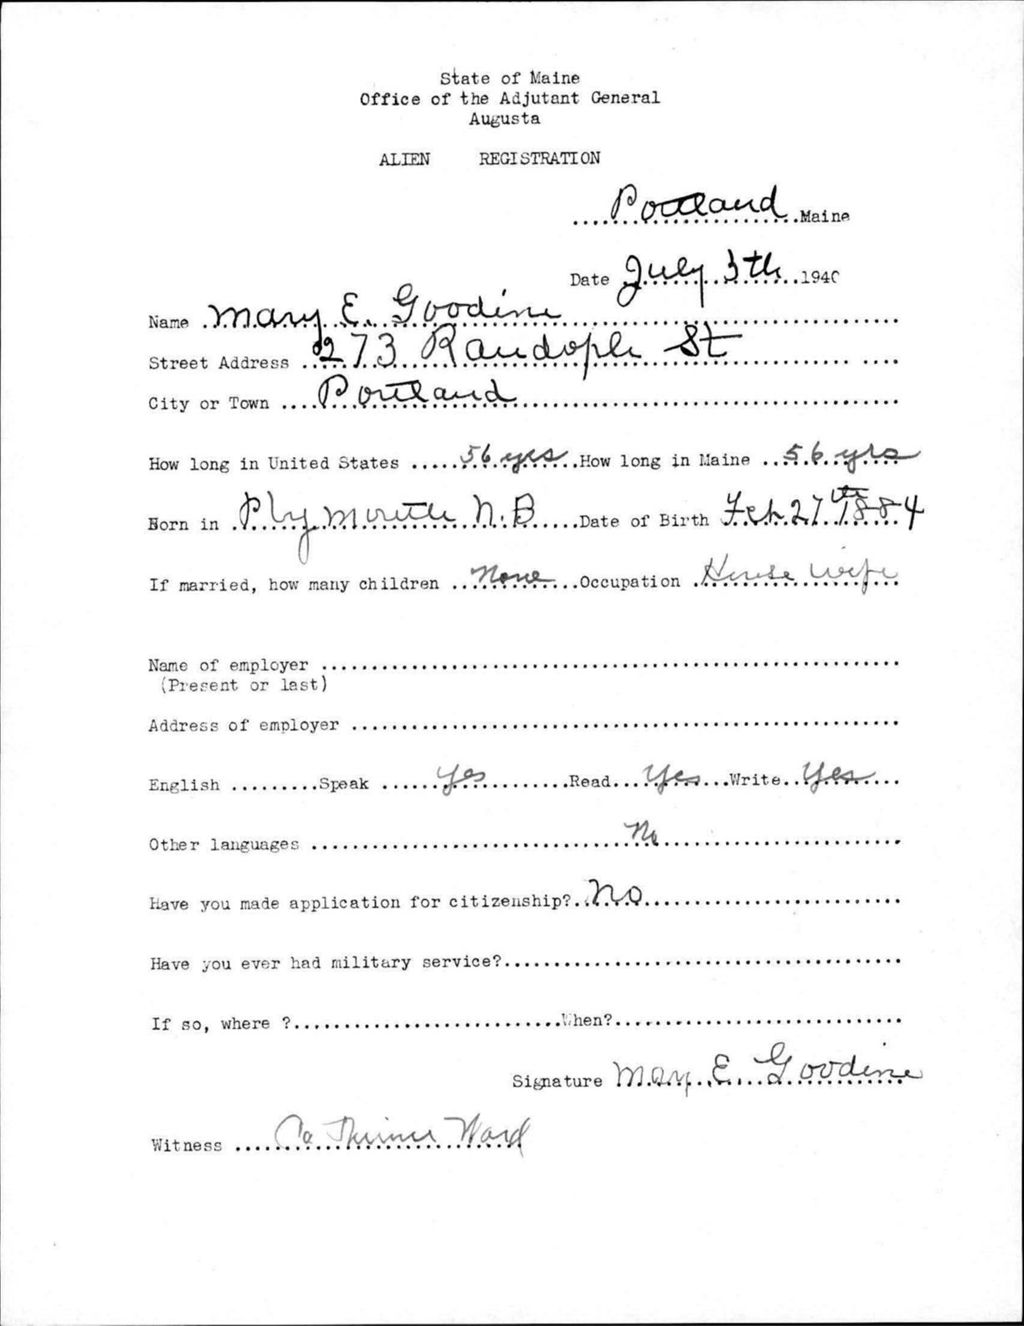 State of Maine
Office of the Adjutant General
Augusta
ALIEN REGISTRATION
Portland Maine
Date July 3th 1940
Name Mary E. Goodine
Street Address 273 Randolph St
City or Town Portland
How long in United States 56 yrs How long in Maine 56 yrs
Born in Plymouth N.B Date of Birth Feb 27th 1884
If married, how many children None Occupation House wife
Name of employer
(Present or last)
Address of employer
English Speak Yes Read Yes Write Yes
Other languages No
Have you made application for citizenship? No
Have you ever had military service?
If so, where ? When?
Signature Mary E. Goodine
Witness Catherine Ward